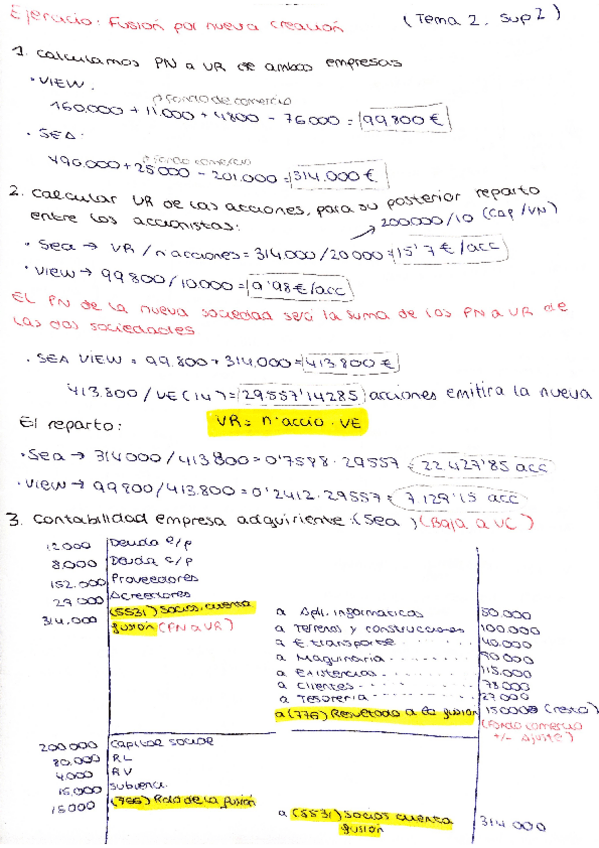 Ejercicio: Fusión por nueva creación (Tema 2. Sup 2)
1. Calculamos PN a VR de ambas empresas
· VIEW.
fondo de comercio
160.000 + 11.000 + 4800 - 76000 = 99800 €
· SEA.
fondo comercio
490.000 + 25000 - 201.000 = 314.000 €
2. Calcular VR de las acciones, para su posterior reparto
entre los accionistas: 200.000/10 (Cap/VN)
· Sea → VR / n acciones = 314.000/20000 = 15'7 €/acc
· View → 99800/10000 = 9'98 €/acc
El PN de la nueva sociedad será la suma de los PN a VR de
las dos sociedades
· SEA VIEW = 99.800 + 314.000 = 413.800 €
413.800 / VE (14) = 29557'14285 acciones emitira la nueva
El reparto: VR = nºaccio · VE
· Sea → 314000/413800 = 0'7588 · 29557 = 22.427'85 acc
· View → 99800/413.800 = 0'2412 · 29557 = 7.129'15 acc
3. Contabilidad empresa adquiriente: (Sea) (Baja a VC)
12000 Deuda l/p
8.000 Deuda c/p
152.000 Proveedores
29000 Acreedores
314.000 (5531) Socios, cuenta
fusión (PN a VR)
a Apli. informaticas 50.000
a Terrenos y construcciones 100.000
a E. transporte 40.000
a Maquinaria 90000
a Existencias 115.000
a Clientes 73.000
a Tesoreria 22.000
a (776) Resultado a la fusión 15000 (resto)
(fondo comercio
+/- Ajuste)
200000 Capital social
80.000 RL
4.000 RV
15.000 Subvenc.
15000 (766) Rdo de la fusión
a (5531) Socios cuenta
fusión 314 000